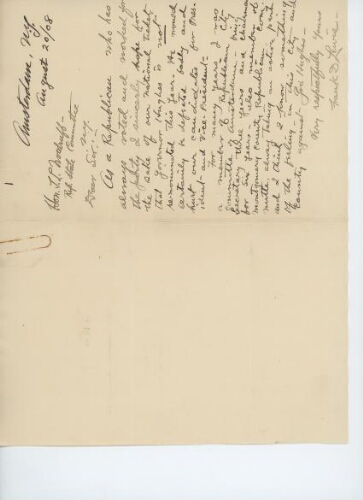 Amsterdam, N.Y.
August 29/08
Hon. T. L. Woodruff-
Rep. State Committee
N.Y.
Dear Sir:-
As a Republican who has
always voted and worked for
the party I sincerely hope for
the sake of our National ticket
that Governor Hughes is not
renominated this year. He would
certainly be defeated badly and
hurt our candidates for Pres-
ident- and Vice-President-
For many years I was
a member of Republican City
Committee Amsterdam- being
Secretary three years and chairman
for six years- also member of
Montgomery County Republican Com-
mittee always taking an active part
and I think I know something
of the feeling in this city and
County against Gov Hughes-
Very respectfully yours
Frank D.